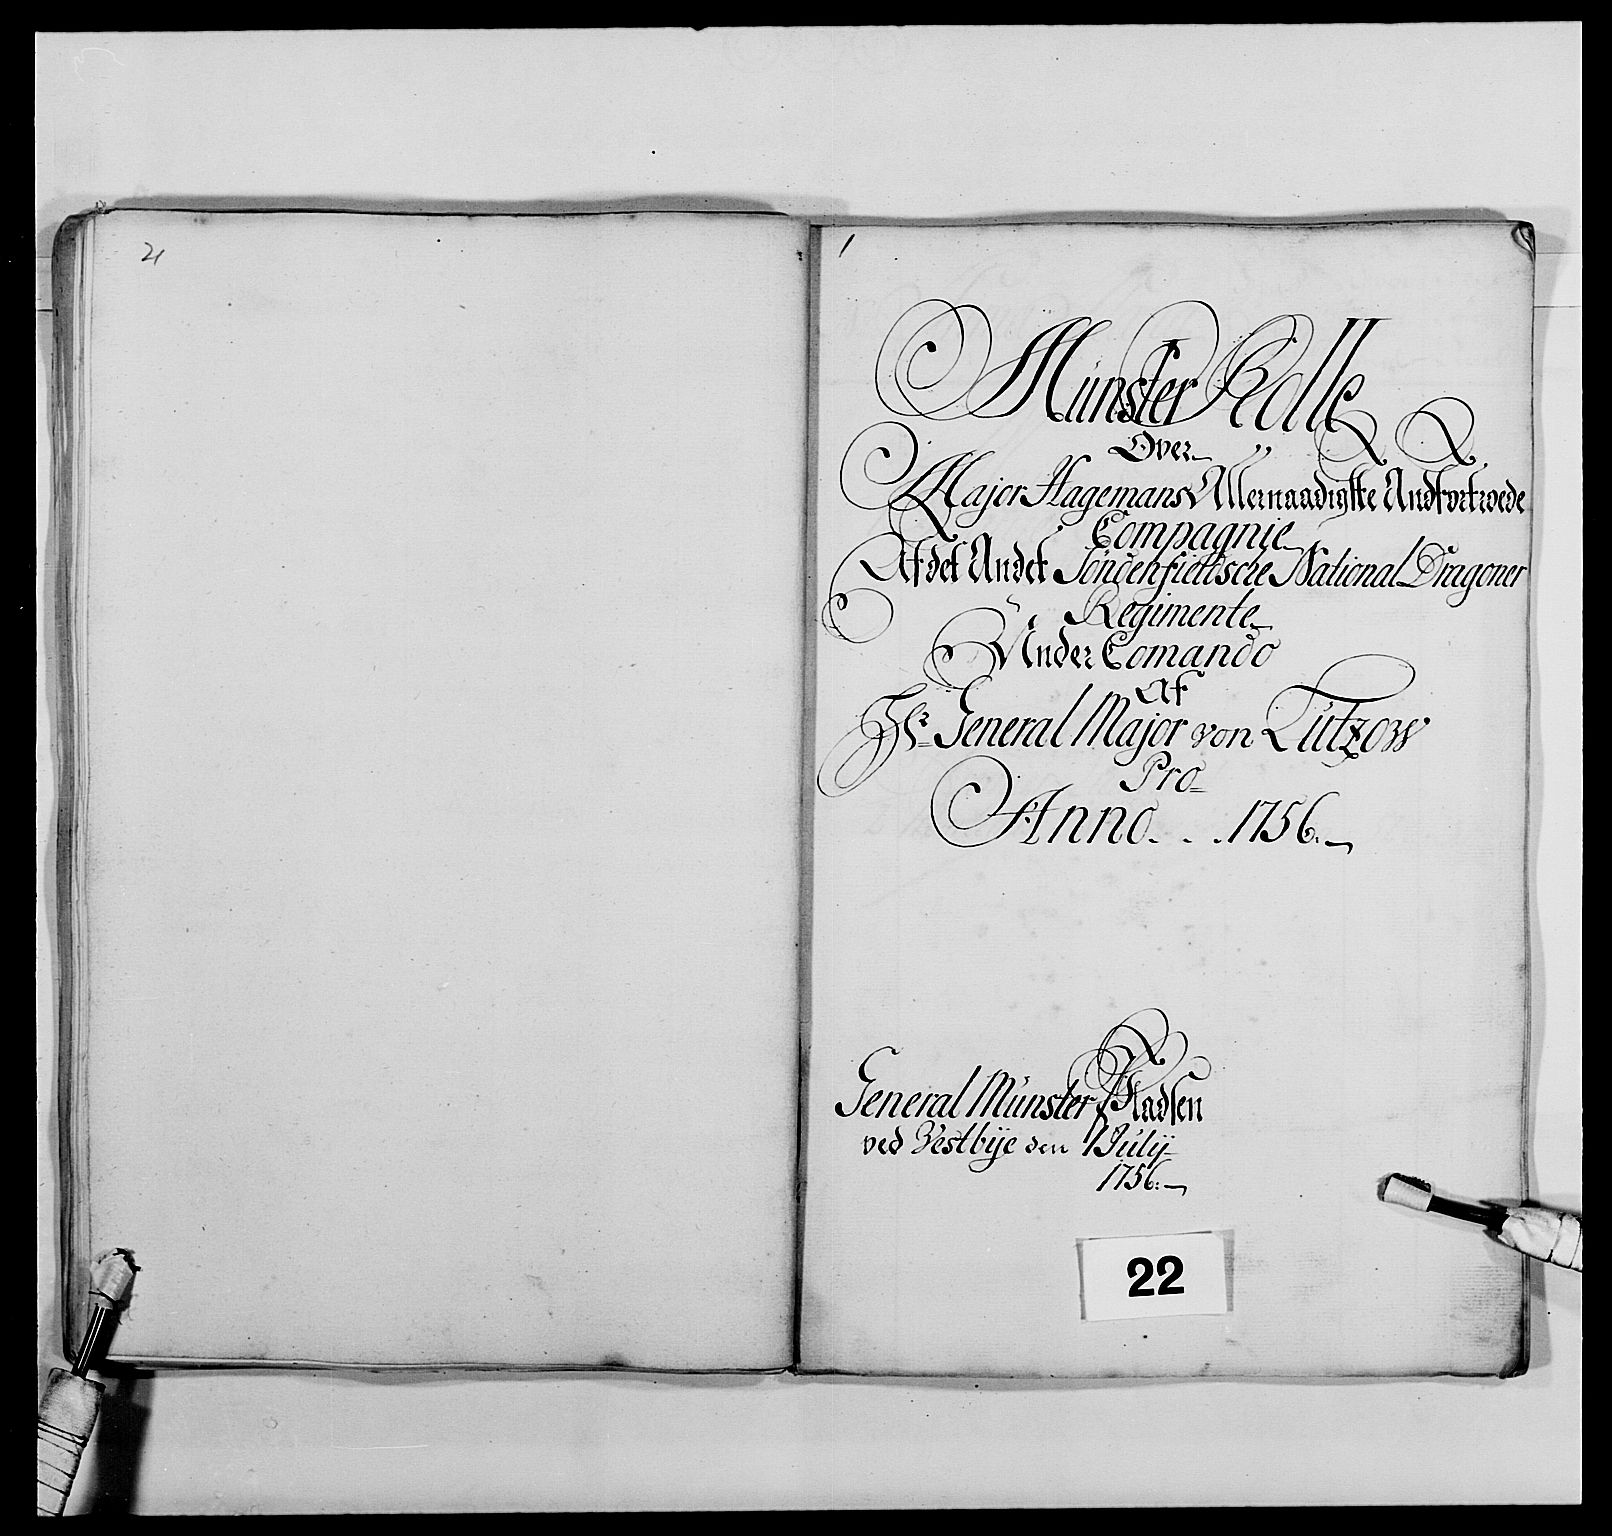 21
1
Münster Rolle
Over
Major Hagemans Allernaadigste Andfortroede
Compagnie
Af det Andet Söndenfieltsche National Dragoner
Regimente
Under Comando
Af
Hr General Major von Lützow
Pro
Anno . . . 1756.
General Münster Pladsen
ved Vestbÿe den 7 Julÿ
1756.
22